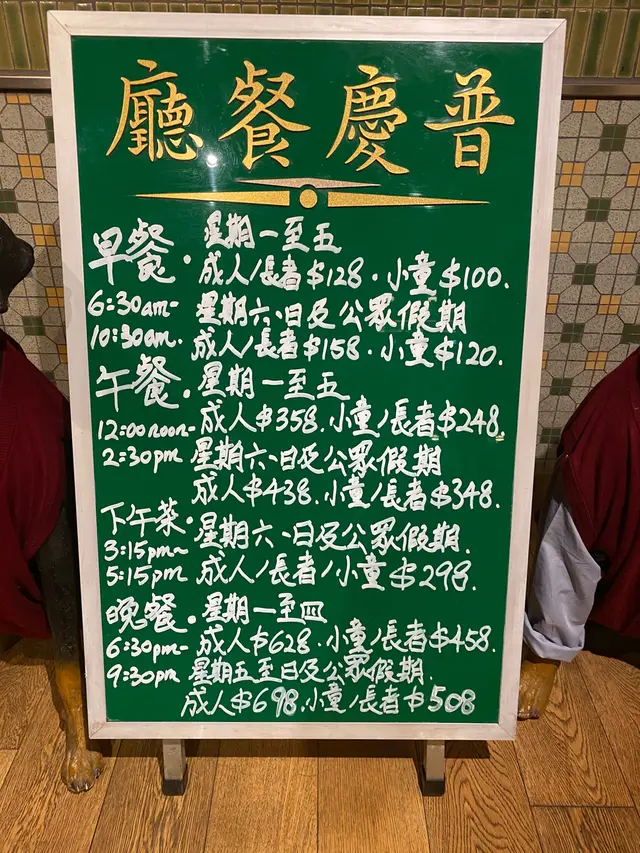 普慶餐廳
早餐.
星期一至五
成人/長者$128.小童$100.
6:30am-
10:30am.
星期六、日及公眾假期
成人/長者$158.小童$120.
午餐.
星期一至五
12:00noon-
2:30pm
成人$358.小童/長者$248.
星期六、日及公眾假期
成人$438.小童/長者$348.
下午茶.
3:15pm~
5:15pm
星期六、日及公眾假期.
成人/長者/小童$298.
晚餐.
星期一至四
6:30pm-
9:30pm
成人$628.小童/長者$458.
星期五至日及公眾假期.
成人$698.小童/長者$508